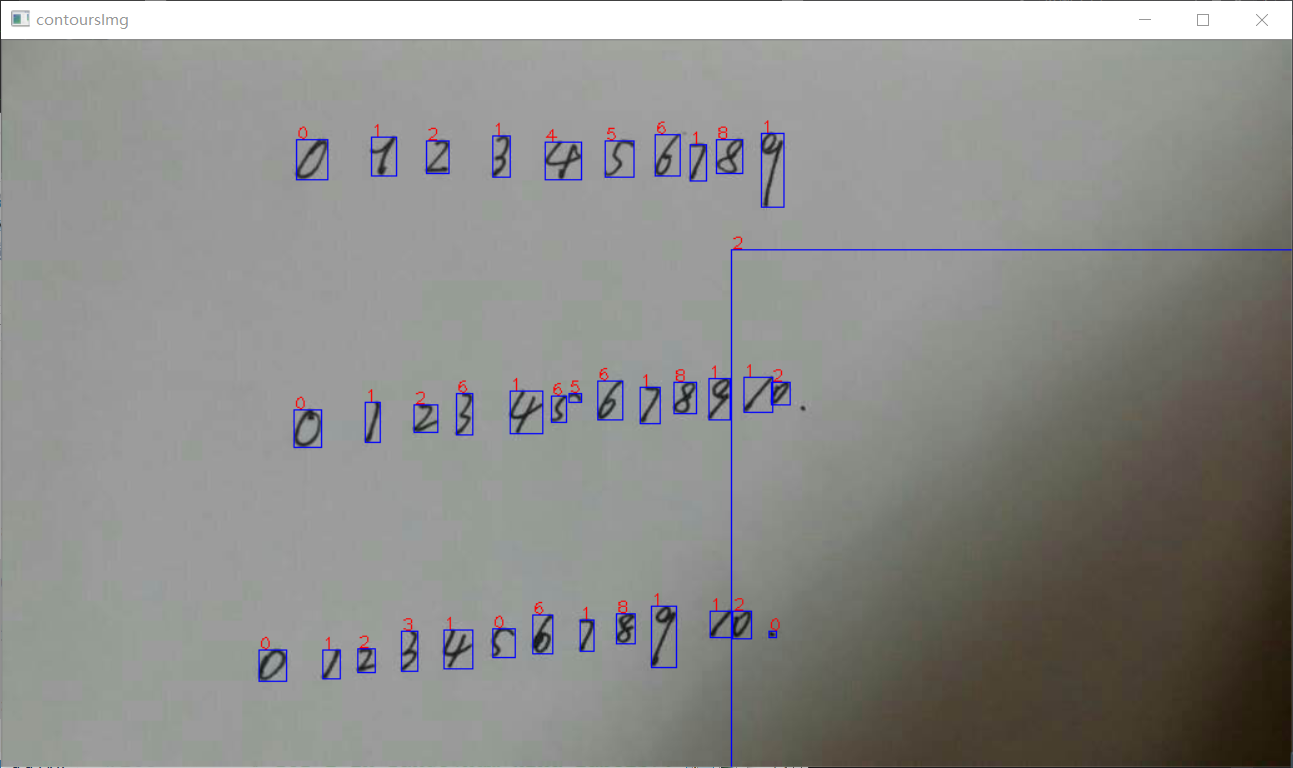 contoursImg
0 1 2 1 4 5 6 1 8 1
0 1 2 3 4 5 6 7 8 9
2
0 1 2 6 1 6 5 6 1 8 1 1 2
0 1 2 3 4 5 6 7 8 9 10.
0 1 2 3 1 0 6 1 8 1 1 2 0
0 1 2 3 4 5 6 7 8 9 10.